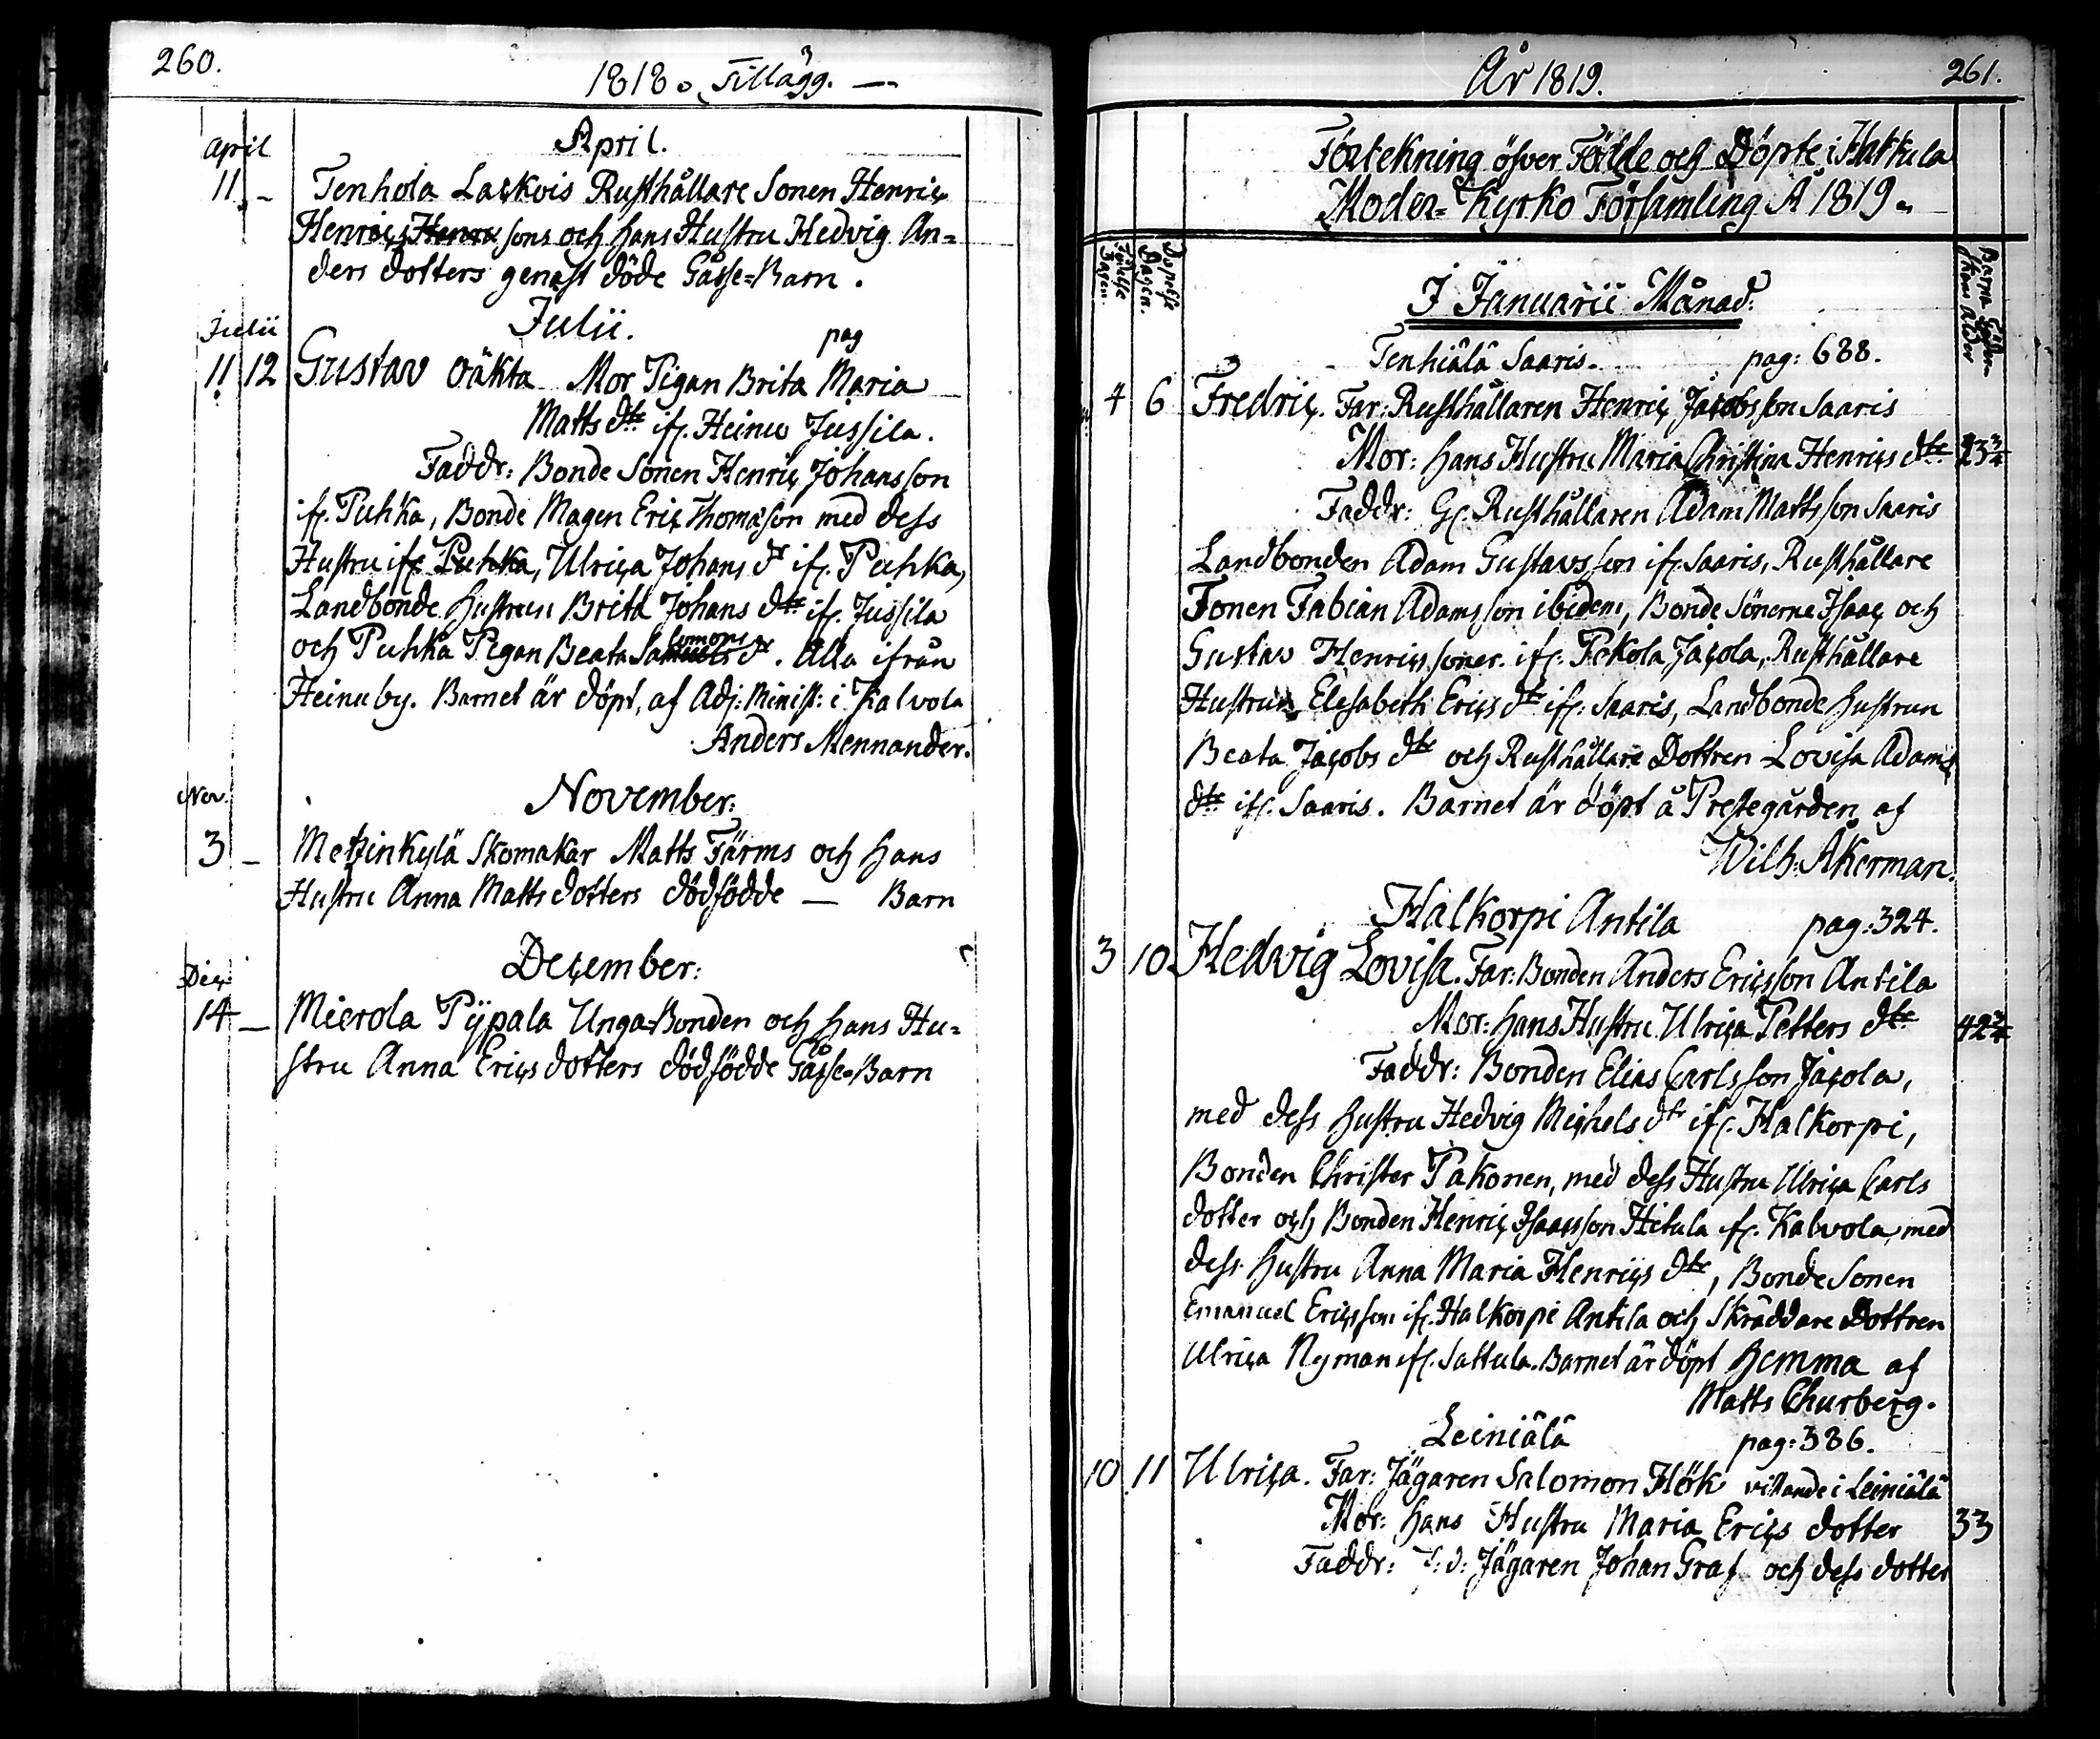 260.
1818. Tillägg. —
April.
April
11. - Tenhola Lackois Rusthållare Sonen Henric
Henrics Henric sons och hans Hustru Hedvig An=
ders dotters genast döde Gåsse=Barn.
Julii.
Julii
pag
11 12 Gustav Oäkta Mor Pigan Brita Maria
Matts dtr ifr. Heinu Jussila.
Faddr: Bonde Sonen Henric Johansson
ifr. Puhka, Bonde Magen Eric Thomasson med dess
Hustru ifr Puhka, Ulrica Johans dr ifr. Puhka,
Landbonde Hustrun Brita Johans dtr ifr. Jussila
och Puhka Pigan Beata Salomons dr. Alla ifrån
Heinuby. Barnet är döpt, af Adj: Minist: i Kalvola
Anders Mennander.
Nov.
November:
3 - Metzinkylä Skomakar Matts Färms och hans
Hustru Anna Matts dotters dödfödde — Barn
Dec.
December:
14 - Mierola Pÿpala Unga-Bonden och hans Hu=
stru Anna Erics dotters dödfödde Gåsse=Barn
År 1819.
261.
Förtekning öfver Födde och Döpte i Hattula
Moder=Kyrko Församling Å 1819.
Födelse Dagen.
Döpelse Dagen.
Barna Föderskans ålder
I Januarii Månad:
Tenhiälä Saaris. pag: 688.
4 6 Fredric. Far: Rusthållaren Henric Jacobsson Saaris
Mor: hans Hustru Maria Christina Henrics dtr 23 3/4
Faddr: Gl. Rusthållaren Adam Mattsson Saaris
Landbonden Adam Gustavsson ifr. Saaris, Rusthållare
Sonen Fabian Adamsson ibidem, Bonde Sönerne Isaac och
Gustav Henricssöner ifr. Pekola Jacola, Rusthållare
Hustrun Elisabeth Erics dtr ifr. Saaris, Landbonde hustrun
Beata Jacobs dtr och Rusthållare Dottren Lovisa Adams
dtr ifr. Saaris. Barnet är döpt å Prestegården af
Wilh: Åkerman.
Halkorpi Antila pag: 324.
3 10 Hedvig Lovisa. Far: Bonden Anders Ericsson Antila
Mor: hans Hustru Ulrica Petters dtr 42 3/4
Faddr: Bonden Elias Carlsson Jacola,
med dess hustru Hedvig Michels dtr ifr. Halkorpi,
Bonden Christer Pakonen, med dess Hustru Ulrica Carls
dotter och Bonden Henric Isaacsson Hitula ifr. Kalvola, med
dess hustru Anna Maria Henrics dtr, Bonde Sonen
Emanuel Ericsson ifr. Halkorpi Antila och Skräddare Dottren
Ulrica Nyman ifr. Sattula. Barnet är döpt hemma af
Matts Churberg.
Leiniälä pag: 386.
10 11 Ulrica. Far: Jägaren Salomon Hök vistande i Leiniälä
Mor: hans Hustru Maria Erics dotter 33
Faddr: Jägaren Johan Graf och dess dotter